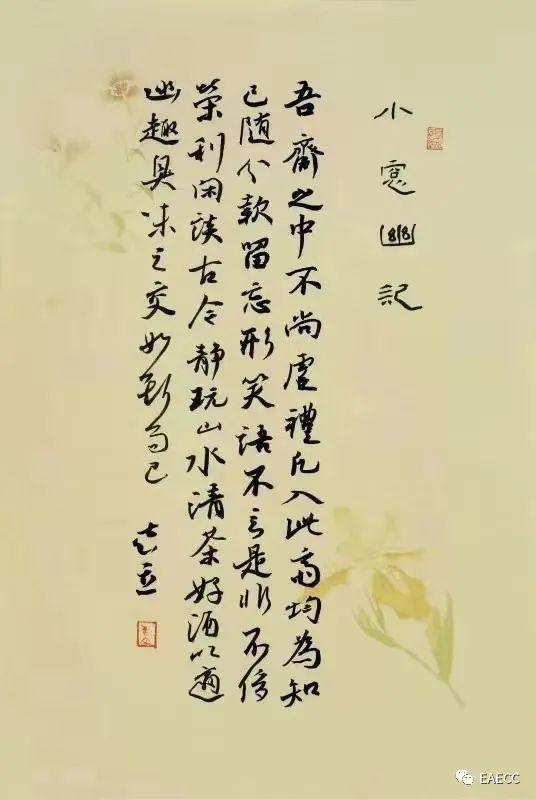 小窓幽記
吾齋之中不尚虛禮凡入此齋均為知
己随分款留忘形笑語不言是非不侈
榮利闲談古今静玩山水清茶好酒以適
幽趣臭味之交如斯而已
EAECC